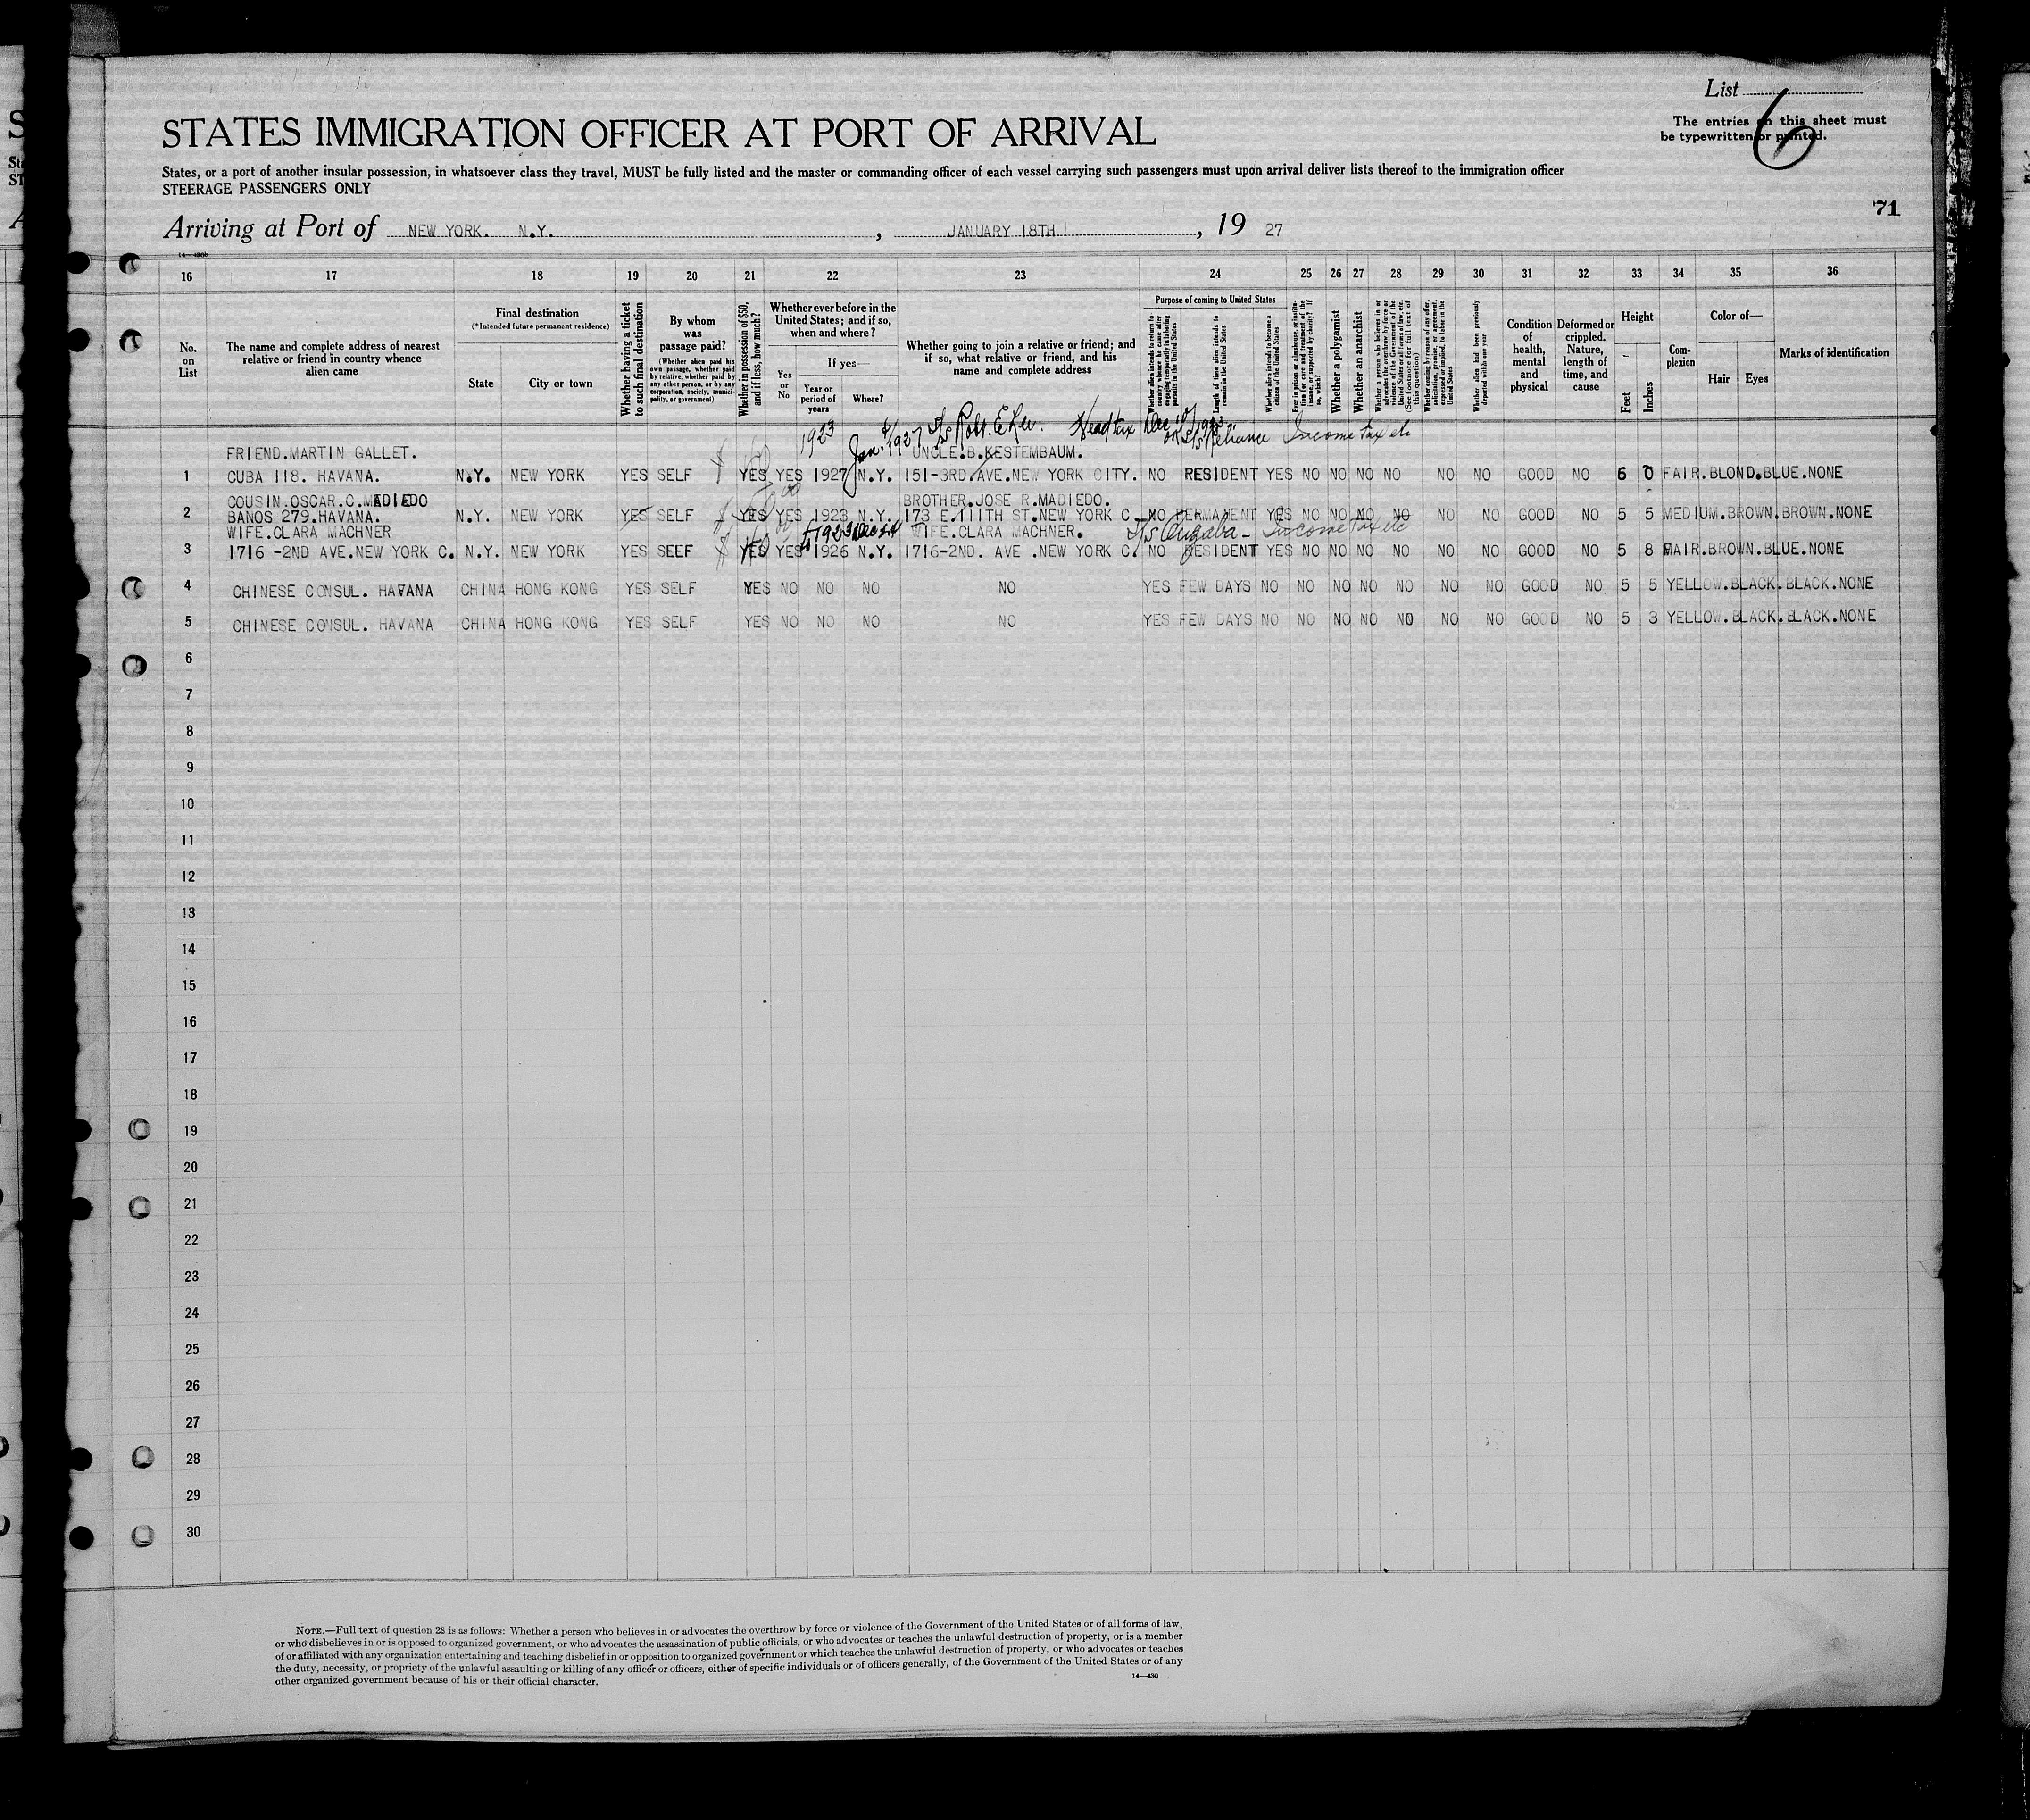 List
6
The entries on this sheet must
be typewritten or printed.
STATES IMMIGRATION OFFICER AT PORT OF ARRIVAL
States, or a port of another insular possession, in whatsoever class they travel, MUST be fully listed and the master or commanding officer of each vessel carrying such passengers must upon arrival deliver lists thereof to the immigration officer
STEERAGE PASSENGERS ONLY
71
Arriving at Port of NEW YORK. N.Y. , JANUARY 18TH , 19 27
14—430b
16 17 18 19 20 21 22 23 24 25 26 27 28 29 30 31 32 33 34 35 36
No. on List
The name and complete address of nearest relative or friend in country whence alien came
Final destination
(*Intended future permanent residence)
State
City or town
Whether having a ticket to such final destination
By whom was passage paid?
(Whether alien paid his own passage, whether paid by relative, whether paid by any other person, or by any corporation, society, municipality, or government)
Whether in possession of $50, and if less, how much?
Whether ever before in the United States; and if so, when and where?
Yes or No
If yes—
Year or period of years
Where?
Whether going to join a relative or friend; and if so, what relative or friend, and his name and complete address
Purpose of coming to United States
Whether alien intends to return to country whence he came after engaging temporarily in laboring pursuits in the United States
Length of time alien intends to remain in the United States
Whether alien intends to become a citizen of the United States
Ever in prison or almshouse, or institution for care and treatment of the insane, or supported by charity? If so, which?
Whether a polygamist
Whether an anarchist
Whether a person who believes in or advocates the overthrow by force or violence of the Government of the United States or all forms of law, etc. (See footnote for full text of this question)
Whether coming by reason of any offer, solicitation, promise, or agreement, expressed or implied, to labor in the United States
Whether alien had been previously deported within one year
Condition of health, mental and physical
Deformed or crippled. Nature, length of time, and cause
Height
Feet
Inches
Com-plexion
Color of—
Hair
Eyes
Marks of identification
1923 Jan. 1927 S/s Robt. E Lee. Head tax Dec 10/1923 on S/s Reliance Income tax etc
FRIEND.MARTIN GALLET. UNCLE.B.KESTEMBAUM.
1 CUBA 118. HAVANA. N.Y. NEW YORK YES SELF $ YES YES 1927 N.Y. 151-3RD.AVE.NEW YORK CITY. NO RESIDENT YES NO NO NO NO NO NO GOOD NO 6 0 FAIR.BLOND.BLUE.NONE
COUSIN.OSCAR.C.MADIEDO BROTHER.JOSE R.MADIEDO.
2 BANOS 279.HAVANA. N.Y. NEW YORK YES SELF $ YES YES 1923 N.Y. 173 E.111TH ST.NEW YORK C. NO PERMANENT YES NO NO NO NO NO NO GOOD NO 5 5 MEDIUM.BROWN.BROWN.NONE
WIFE.CLARA MACHNER 1923 Dec 24 WIFE.CLARA MACHNER. S/s Orizaba - Income tax etc
3 1716 -2ND AVE.NEW YORK C. N.Y. NEW YORK YES SEEF $ YES YES 1926 N.Y. 1716-2ND. AVE .NEW YORK C. NO RESIDENT YES NO NO NO NO NO NO GOOD NO 5 8 FAIR.BROWN.BLUE.NONE
4 CHINESE CONSUL. HAVANA CHINA HONG KONG YES SELF YES NO NO NO NO YES FEW DAYS NO NO NO NO NO NO NO GOOD NO 5 5 YELLOW.BLACK.BLACK.NONE
5 CHINESE CONSUL. HAVANA CHINA HONG KONG YES SELF YES NO NO NO NO YES FEW DAYS NO NO NO NO NO NO NO GOOD NO 5 3 YELLOW.BLACK.BLACK.NONE
6
7
8
9
10
11
12
13
14
15
16
17
18
19
20
21
22
23
24
25
26
27
28
29
30
NOTE.—Full text of question 28 is as follows: Whether a person who believes in or advocates the overthrow by force or violence of the Government of the United States or of all forms of law,
or who disbelieves in or is opposed to organized government, or who advocates the assassination of public officials, or who advocates or teaches the unlawful destruction of property, or is a member
of or affiliated with any organization entertaining and teaching disbelief in or opposition to organized government or which teaches the unlawful destruction of property, or who advocates or teaches
the duty, necessity, or propriety of the unlawful assaulting or killing of any officer or officers, either of specific individuals or of officers generally, of the Government of the United States or of any
other organized government because of his or their official character.
14—430